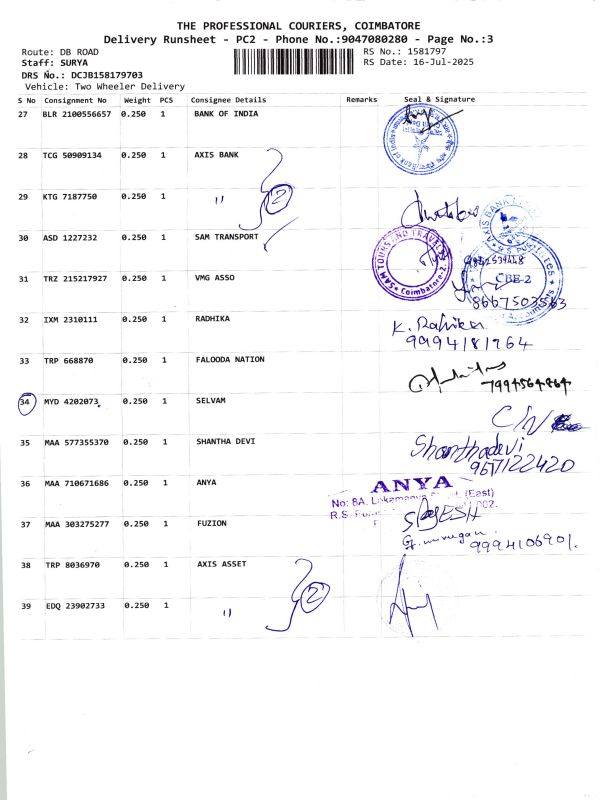 THE PROFESSIONAL COURIERS, COIMBATORE
Delivery Runsheet - PC2 - Phone No.:9047080280 - Page No.:3
Route: DB ROAD
RS No.: 1581797
Staff: SURYA
RS Date: 16-Jul-2025
DRS No.: DCJB158179703
Vehicle: Two Wheeler Delivery
S No Consignment No Weight PCS Consignee Details Remarks Seal & Signature
27 BLR 2100556657 0.250 1 BANK OF INDIA
28 TCG 50909134 0.250 1 AXIS BANK
29 KTG 7187750 0.250 1 " 2
AXIS BANK
30 ASD 1227232 0.250 1 SAM TRANSPORT
SAM TOURS AND TRAVELS
Coimbatore-2.
31 TRZ 215217927 0.250 1 VMG ASSO
CBE-2
8667503563
32 IXM 2310111 0.250 1 RADHIKA
K. Radhika
9994181764
33 TRP 668870 0.250 1 FALOODA NATION
7994564864
34 MYD 4202073 0.250 1 SELVAM
C/N
35 MAA 577355370 0.250 1 SHANTHA DEVI
Shanthadevi
9677122420
36 MAA 710671686 0.250 1 ANYA
ANYA
No: 8A, Lokamanya (East)
R.S. 002.
37 MAA 303275277 0.250 1 FUZION
G. murugan
9994106901.
38 TRP 8036970 0.250 1 AXIS ASSET
39 EDQ 23902733 0.250 1 " 2